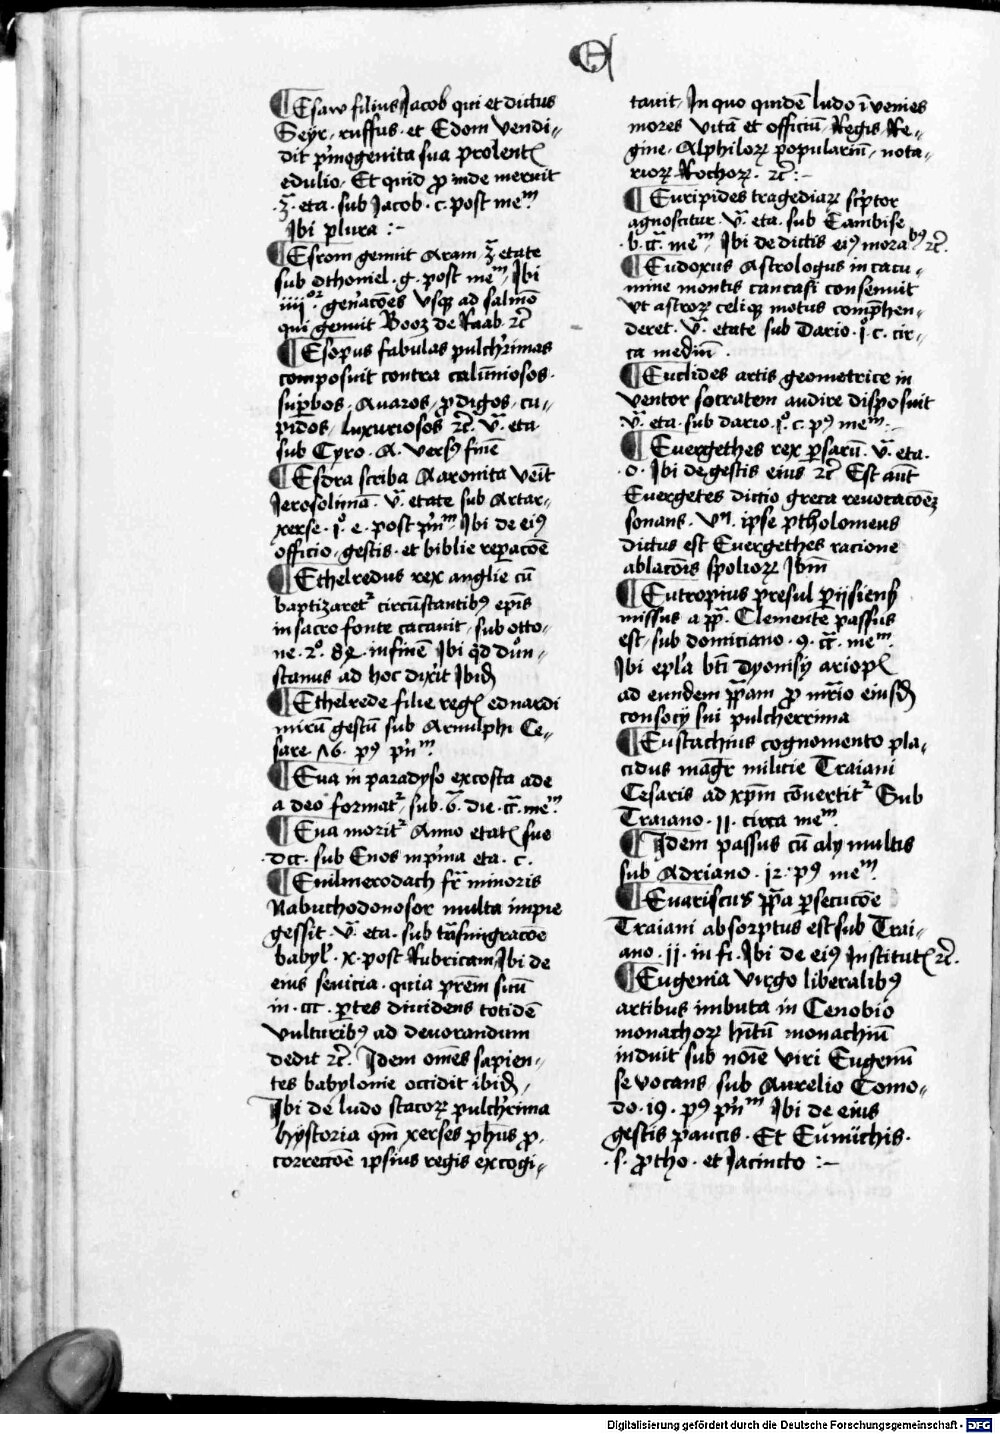 E
¶ Esaw filius Jacob qui et dictus
Seyr, ruffus. et Edom vendi-
dit p'mogenita sua pro lent
edulio. Et quid p inde meruit
.3ª. eta. sub Jacob. c. post meᵐ
Ibi plura :-
¶ Esrom genuit Aram. 3ª etate
sub othoniel. g. post meᵐ. Ibi
iiiiᵒʳ. gen'acōes vsqꝫ ad salmō
qui genuit Booz de Raab. ⁊c̄
¶ Esopus fabulas pulch'rimas
composuit contra calūniosos.
sup̄bos. Auaros, p̱digos, cu-
pidos, luxuriosos ⁊c̄. v̄. eta.
sub Cyro. A. versꝰ finē
¶ Esdra scriba Aaronita venīt
Jerosolimā. v̄. etate sub Artar-
xerse. i°. e. post p'mᵐ. Ibi de eiꝰ
officio, gestis. et biblie rep̱acōe
¶ Ethelredus rex anglie cū
baptizaretʳ circūstantibꝰ ep̄is
in sacro fonte cacauit, sub otto-
ne. 2°. 82. in finē Ibi qd dun-
stanus ad hoc dixit Ibid
¶ Ethelrede filie reg eduardi
mirū gestū sub Arnulphi Ce-
sare 16. pꝰ p'mᵐ.
¶ Eua in paradyso ex costa ade
a deo formatʳ, sub. 6ª. die. cr̄. meᵐ.
¶ Eua moritʳ Anno etat sue
.dcc. sub Enos in p'ma eta. c.
¶ Euilmerodach fr̄ minoris
Nabuchodonosor multa impie
gessit. v̄. eta. sub tr̄asmigracōe
babyl'. x. post Rubricam, Ibi de
eius seuicia. quia prēm suū
in. ccc. p̱tes diuidens totidē
vulturibꝰ ad deuorandum
dedit ⁊c̄. Idem om̄es sapien-
tes babylonie occidit ibid,
Ibi de ludo scacoꝝ pulch'rima
hystoria qm̄ xerses ph̄us p̱
correctōe ipsius regis excogi-
tauit. In quo quidē ludo īuenies
mores vitā et officiū. Regis, Re-
gine. Alphiloꝝ popularium, nota-
rioꝝ Rochoꝝ. ⁊c̄ :-
¶ Euripides tragediaꝝ sc̓ptor
agnoscitur. v̄. eta. sub Cambise
.b. cr̄. meᵐ. Ibi de dictis eiꝰ moraᵇꝰ ⁊c̄.
¶ Eudoxus Astrologus in cacu-
mine montis caucasi consenuit
vt astroꝝ celiqꝫ motus comp̄hen-
deret. v̄. etate sub Dario. i°. c. cir-
ca mediū.
¶ Euclides artis geometrice in
ventor socratem audire disposuit
.v̄. eta. sub dario. i°. c. pꝰ meᵐ.
¶ Euergethes rex p̱sarū. v̄. eta.
.o. Ibi de gestis eius ⁊c̄ Est aūt
Euergetes dictio greca reuocacōeꝫ
sonans. vn̄. ipse ptholomeus
dictus est Euergethes racione
ablacōis spolioꝝ Ibm̄
¶ Eutropius presul p̱ijsiens
missus a pp̄. Clemente passus
est, sub domiciano. 9. cr̄. meᵐ.
Ibi ep̄la bt̄i dyonisy ariop
ad eundem pp̄am p̱ mr̄io eiusd
consocij sui pulcherrima
¶ Eustachius cognomento pla-
cidus magr̄ milicie Traiani
Cesaris ad xp̄m cōuertitʳ Sub
Traiano. 11. circa meᵐ.
¶ Idem passus cū alijs multis
sub Adriano. 12. pꝰ meᵐ.
¶ Euariscus pp̄a p̱secucōe
Traiani absorptus est sub Trai-
ano. 11. in fi. Ibi de eiꝰ Institut ⁊c̄.
¶ Eugenia virgo liberalibꝰ
artibus imbuta in Cenobio
monachoꝝ hītū monachiū
induit sub noīe viri Eugeniū
se vocans, sub Aurelio Como-
do. 19. pꝰ p'mᵐ Ibi de eius
gestis paucis. Et Eunuchis.
.s. p̱tho. et Jacincto :-
Digitalisierung gefördert durch die Deutsche Forschungsgemeinschaft - DFG